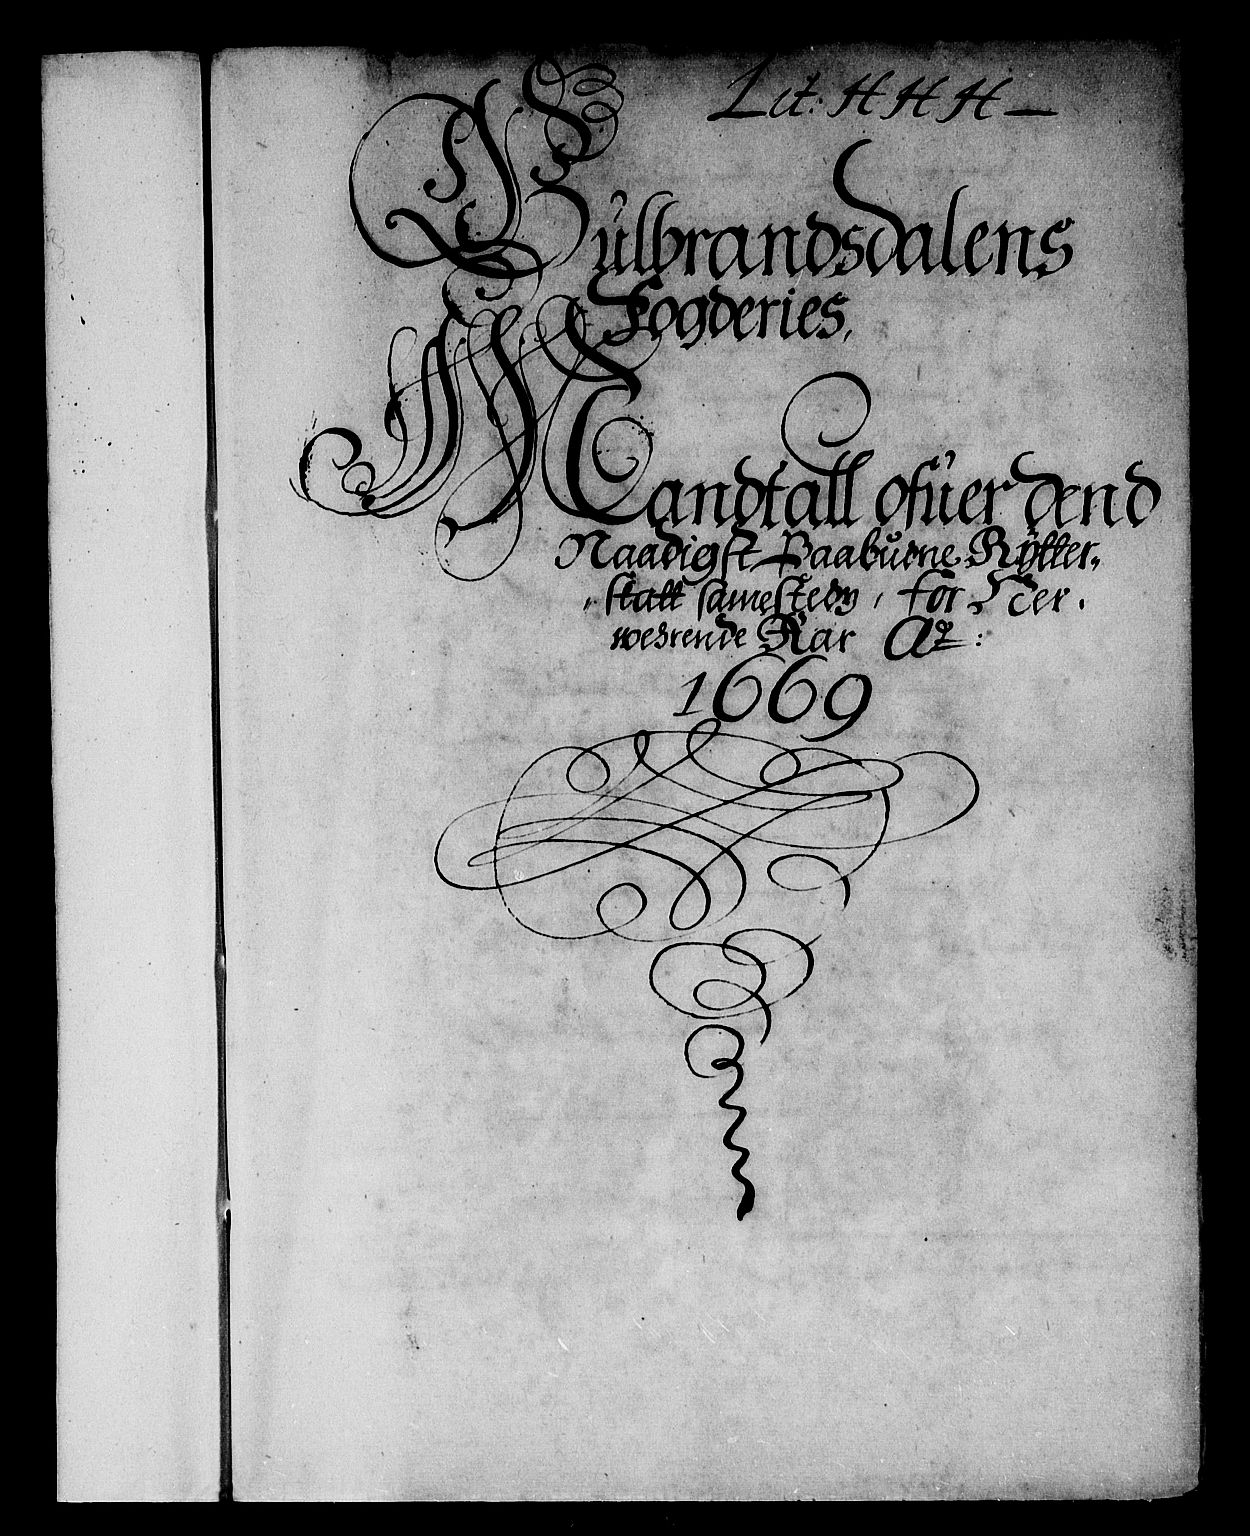 Lit: HHH —
Gůlbrandsdalens
Fogderies,
Mandtall ofůer dend
Naadigst Paabůdne Rÿtter-
skatt samesteds, for Ner-
werende Aar Aō:
1669